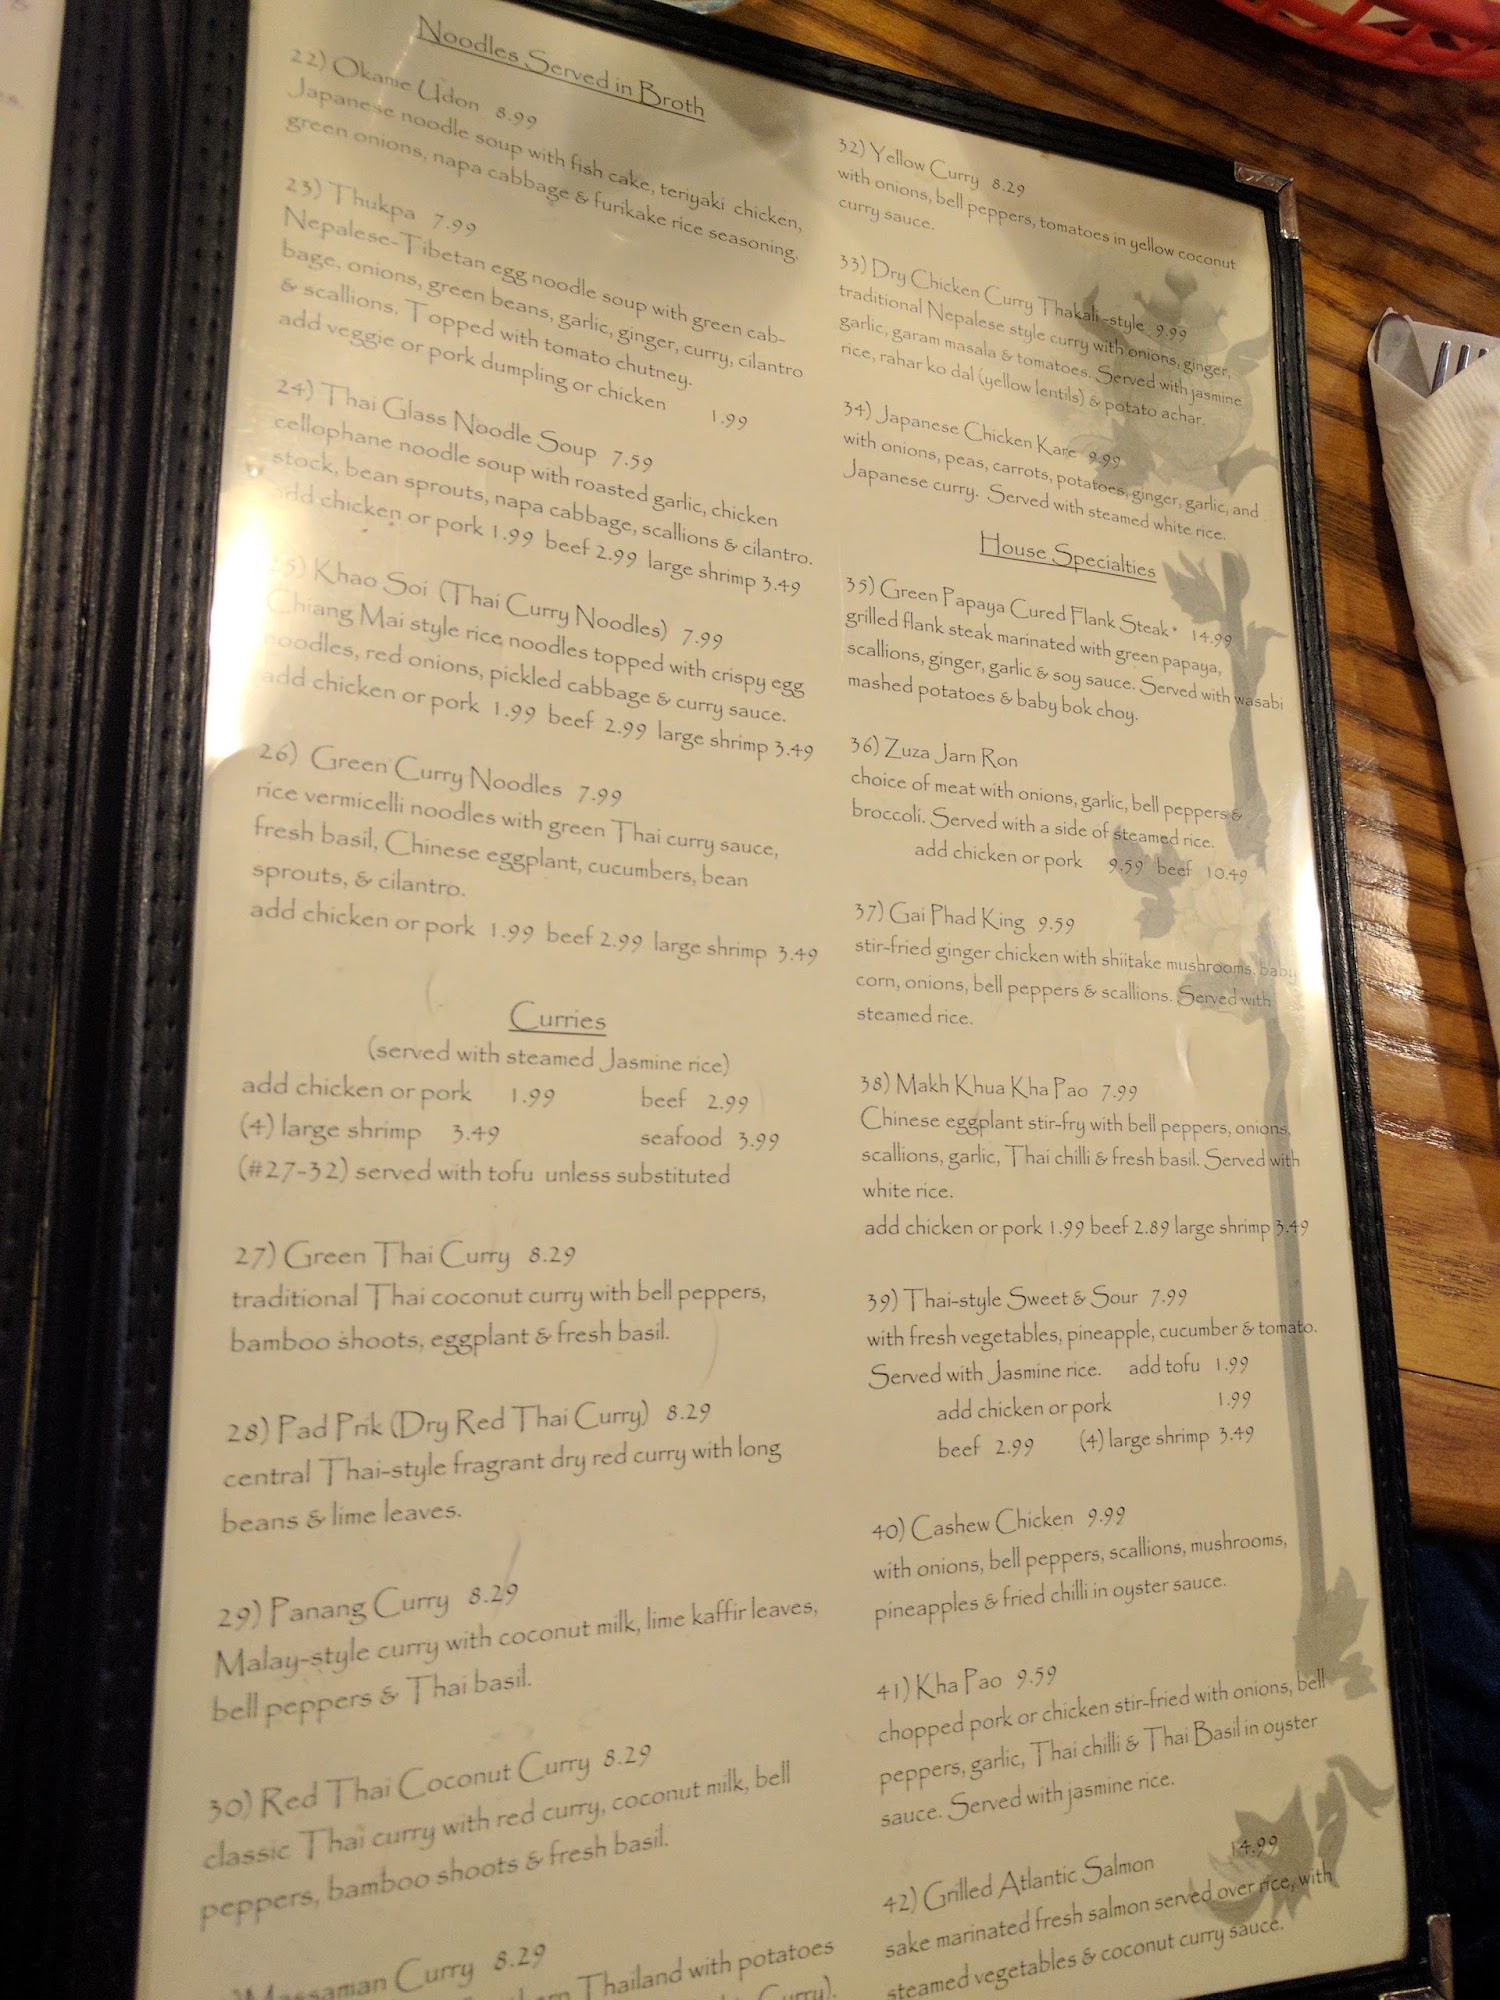 Noodles Served in Broth
22) Okame Udon 8.99
Japanese noodle soup with fish cake, teriyaki chicken,
green onions, napa cabbage & furikake rice seasoning.
23) Thukpa 7.99
Nepalese-Tibetan egg noodle soup with green cab-
bage, onions, green beans, garlic, ginger, curry, cilantro
& scallions. Topped with tomato chutney.
add veggie or pork dumpling or chicken 1.99
24) Thai Glass Noodle Soup 7.59
cellophane noodle soup with roasted garlic, chicken
stock, bean sprouts, napa cabbage, scallions & cilantro.
add chicken or pork 1.99 beef 2.99 large shrimp 3.49
25) Khao Soi (Thai Curry Noodles) 7.99
Chiang Mai style rice noodles topped with crispy egg
noodles, red onions, pickled cabbage & curry sauce.
add chicken or pork 1.99 beef 2.99 large shrimp 3.49
26) Green Curry Noodles 7.99
rice vermicelli noodles with green Thai curry sauce,
fresh basil, Chinese eggplant, cucumbers, bean
sprouts, & cilantro.
add chicken or pork 1.99 beef 2.99 large shrimp 3.49
Curries
(served with steamed Jasmine rice)
add chicken or pork 1.99 beef 2.99
(4) large shrimp 3.49 seafood 3.99
(#27-32) served with tofu unless substituted
27) Green Thai Curry 8.29
traditional Thai coconut curry with bell peppers,
bamboo shoots, eggplant & fresh basil.
28) Pad Prik (Dry Red Thai Curry) 8.29
central Thai-style fragrant dry red curry with long
beans & lime leaves.
29) Panang Curry 8.29
Malay-style curry with coconut milk, lime kaffir leaves,
bell peppers & Thai basil.
30) Red Thai Coconut Curry 8.29
classic Thai curry with red curry, coconut milk, bell
peppers, bamboo shoots & fresh basil.
Massaman Curry 8.29
Thailand with potatoes
Curry).
32) Yellow Curry 8.29
with onions, bell peppers, tomatoes in yellow coconut
curry sauce.
33) Dry Chicken Curry Thakali-style 9.99
traditional Nepalese style curry with onions, ginger,
garlic, garam masala & tomatoes. Served with jasmine
rice, rahar ko dal (yellow lentils) & potato achar.
34) Japanese Chicken Kare 9.99
with onions, peas, carrots, potatoes, ginger, garlic, and
Japanese curry. Served with steamed white rice.
House Specialties
35) Green Papaya Cured Flank Steak* 14.99
grilled flank steak marinated with green papaya,
scallions, ginger, garlic & soy sauce. Served with wasabi
mashed potatoes & baby bok choy.
36) Zuza Jarn Ron
choice of meat with onions, garlic, bell peppers &
broccoli. Served with a side of steamed rice.
add chicken or pork 9.59 beef 10.49
37) Gai Phad King 9.59
stir-fried ginger chicken with shiitake mushrooms, baby
corn, onions, bell peppers & scallions. Served with
steamed rice.
38) Makh Khua Kha Pao 7.99
Chinese eggplant stir-fry with bell peppers, onions,
scallions, garlic, Thai chilli & fresh basil. Served with
white rice.
add chicken or pork 1.99 beef 2.89 large shrimp 3.49
39) Thai-style Sweet & Sour 7.99
with fresh vegetables, pineapple, cucumber & tomato.
Served with Jasmine rice. add tofu 1.99
add chicken or pork 1.99
beef 2.99 (4) large shrimp 3.49
40) Cashew Chicken 9.99
with onions, bell peppers, scallions, mushrooms,
pineapples & fried chilli in oyster sauce.
41) Kha Pao 9.59
chopped pork or chicken stir-fried with onions, bell
peppers, garlic, Thai chilli & Thai Basil in oyster
sauce. Served with jasmine rice.
42) Grilled Atlantic Salmon 14.99
sake marinated fresh salmon served over rice, with
steamed vegetables & coconut curry sauce.